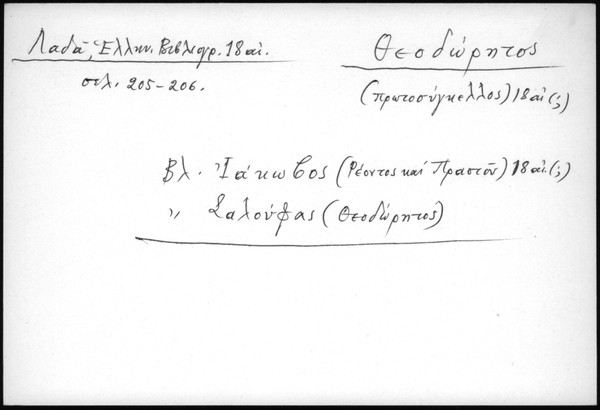 Λαδᾶ, Ἑλλην. Βιβλιογρ. 18 αἰ.
σελ. 205-206.
Θεοδώρητος
(πρωτοσύγκελλος) 18 αἰ (;)
Βλ. Ἰάκωβος (Ρέοντος καί Πραστοῦ) 18 αἰ. (;)
〃 Σαλούφας (Θεοδώρητος)